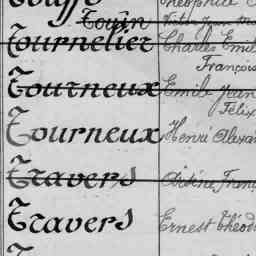 Touin
Tournelier Charles Emil
François
Tourneux Emile Jean
Félix
Tourneux Henri Alexa
Travers Franç
Travers Ernest Théod